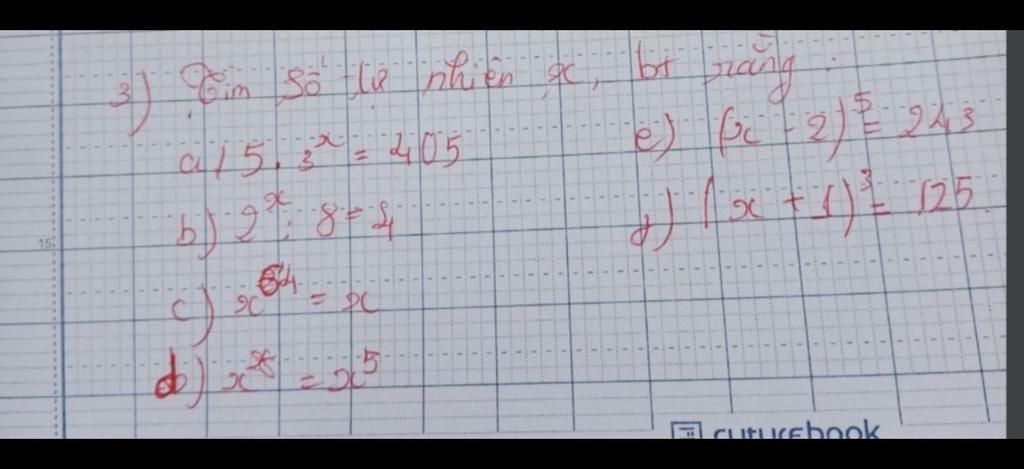 3) Tìm số tự nhiên x, bt rằng:
a/ 5 . 3^x = 405
b) 2^x : 8 = 4
c) x^64 = x
d) x^x = x^5
e) (x - 2)^5 = 243
f) (x + 1)^3 = 125.
15
futurebook